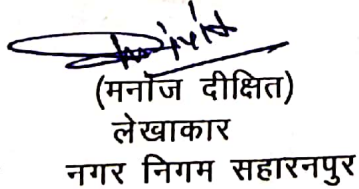 (मनोज दीक्षित)
लेखाकार
नगर निगम सहारनपुर